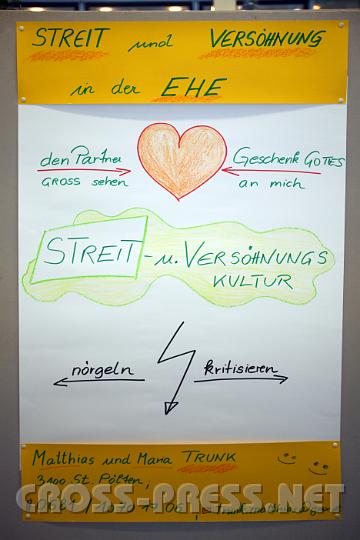 STREIT und VERSÖHNUNG
in der EHE
den Partner
GROSS sehen
Geschenk GOTTES
an mich
STREIT - u. VERSÖHNUNGS
KULTUR
nörgeln
kritisieren
Matthias und Maria TRUNK
3100 St. Pölten,
CROSS-PRESS.NET